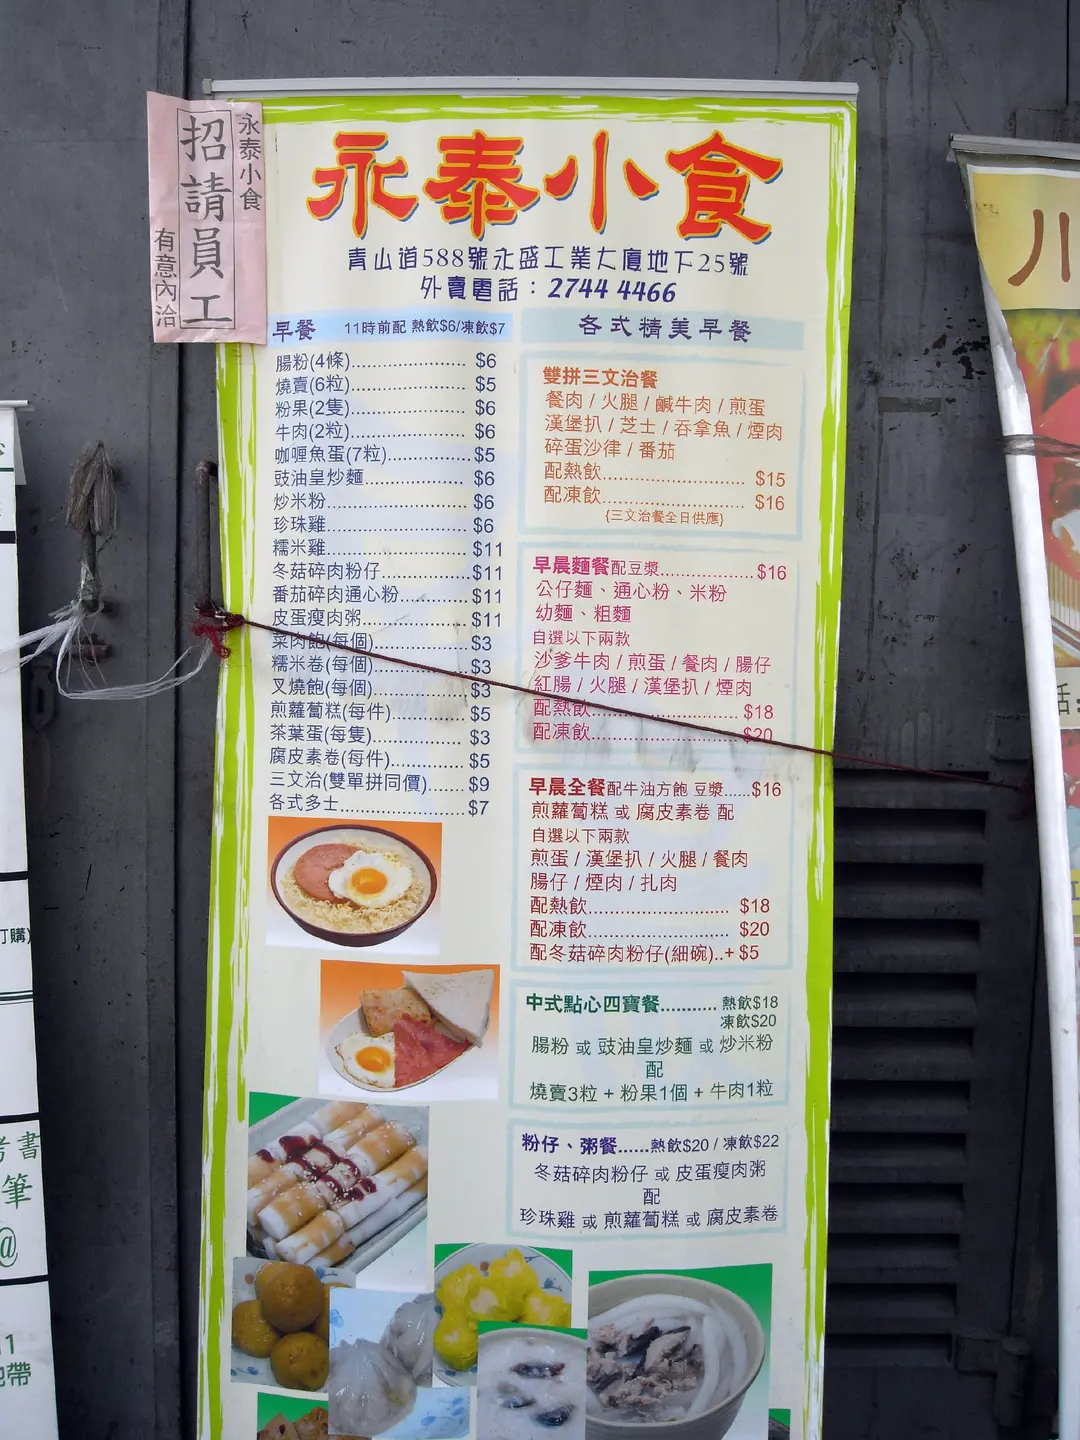 永泰小食
招請員工
有意內洽
永泰小食
青山道588號永盛工業大廈地下25號
外賣電話：2744 4466
早餐 11時前配 熱飲$6/凍飲$7
腸粉(4條)........................ $6
燒賣(6粒)........................ $5
粉果(2隻)........................ $6
牛肉(2粒)........................ $6
咖喱魚蛋(7粒)................. $5
豉油皇炒麵..................... $6
炒米粉............................ $6
珍珠雞............................ $6
糯米雞............................ $11
冬菇碎肉粉仔.................. $11
番茄碎肉通心粉............... $11
皮蛋瘦肉粥..................... $11
菜肉飽(每個).................. $3
糯米卷(每個).................. $3
叉燒飽(每個).................. $3
煎蘿蔔糕(每件)............... $5
茶葉蛋(每隻).................. $3
腐皮素卷(每件)............... $5
三文治(雙單拼同價)....... $9
各式多士........................ $7
各式精美早餐
雙拼三文治餐
餐肉 / 火腿 / 鹹牛肉 / 煎蛋
漢堡扒 / 芝士 / 吞拿魚 / 煙肉
碎蛋沙律 / 番茄
配熱飲............................ $15
配凍飲............................ $16
{三文治餐全日供應}
早晨麵餐配豆漿.................. $16
公仔麵、通心粉、米粉
幼麵、粗麵
自選以下兩款
沙爹牛肉 / 煎蛋 / 餐肉 / 腸仔
紅腸 / 火腿 / 漢堡扒 / 煙肉
配熱飲............................ $18
配凍飲............................ $20
早晨全餐配牛油方飽 豆漿......$16
煎蘿蔔糕 或 腐皮素卷 配
自選以下兩款
煎蛋 / 漢堡扒 / 火腿 / 餐肉
腸仔 / 煙肉 / 扎肉
配熱飲............................ $18
配凍飲............................ $20
配冬菇碎肉粉仔(細碗)..+ $5
中式點心四寶餐........... 熱飲$18
凍飲$20
腸粉 或 豉油皇炒麵 或 炒米粉
配
燒賣3粒 + 粉果1個 + 牛肉1粒
粉仔、粥餐......熱飲$20 / 凍飲$22
冬菇碎肉粉仔 或 皮蛋瘦肉粥
配
珍珠雞 或 煎蘿蔔糕 或 腐皮素卷
訂購)
書
筆
@
地帶
川
話: